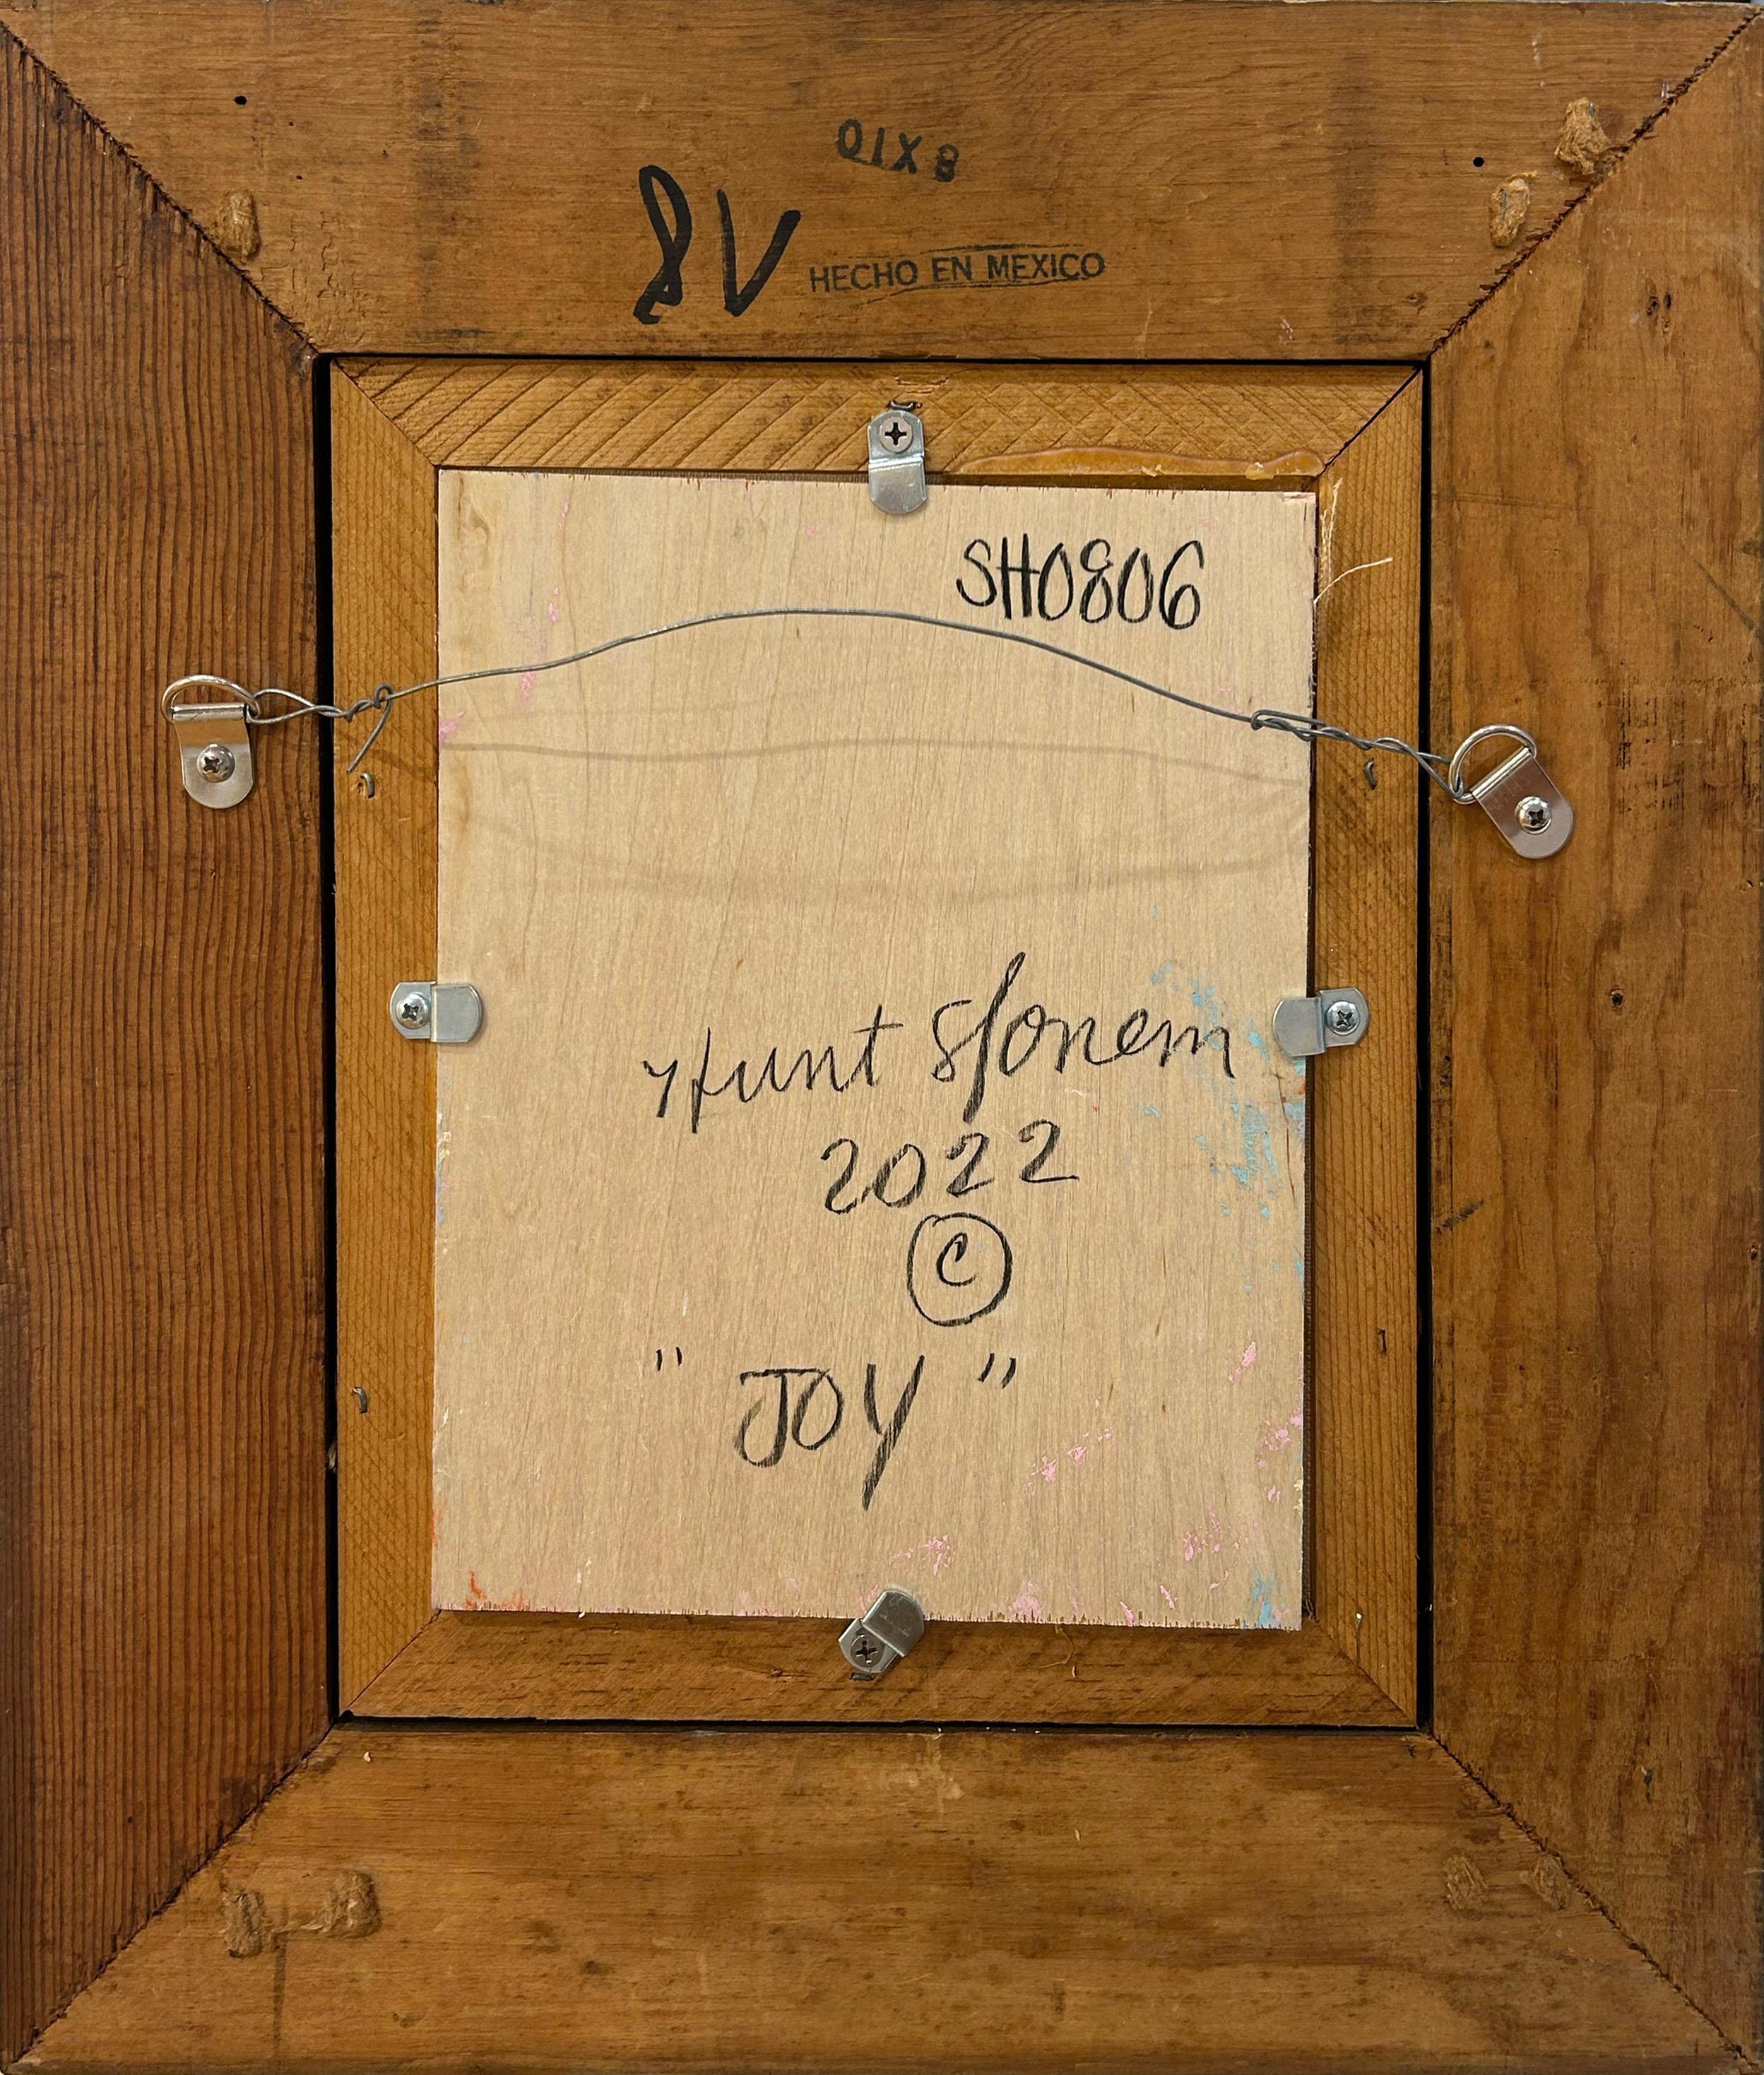 8X10
8V
HECHO EN MEXICO
SH0806
Hunt Slonem
2022
©
"JOY"